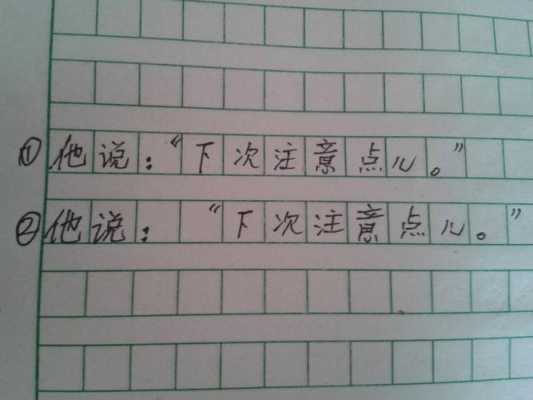 ①他说：“下次注意点儿。”
②他说：“下次注意点儿。”